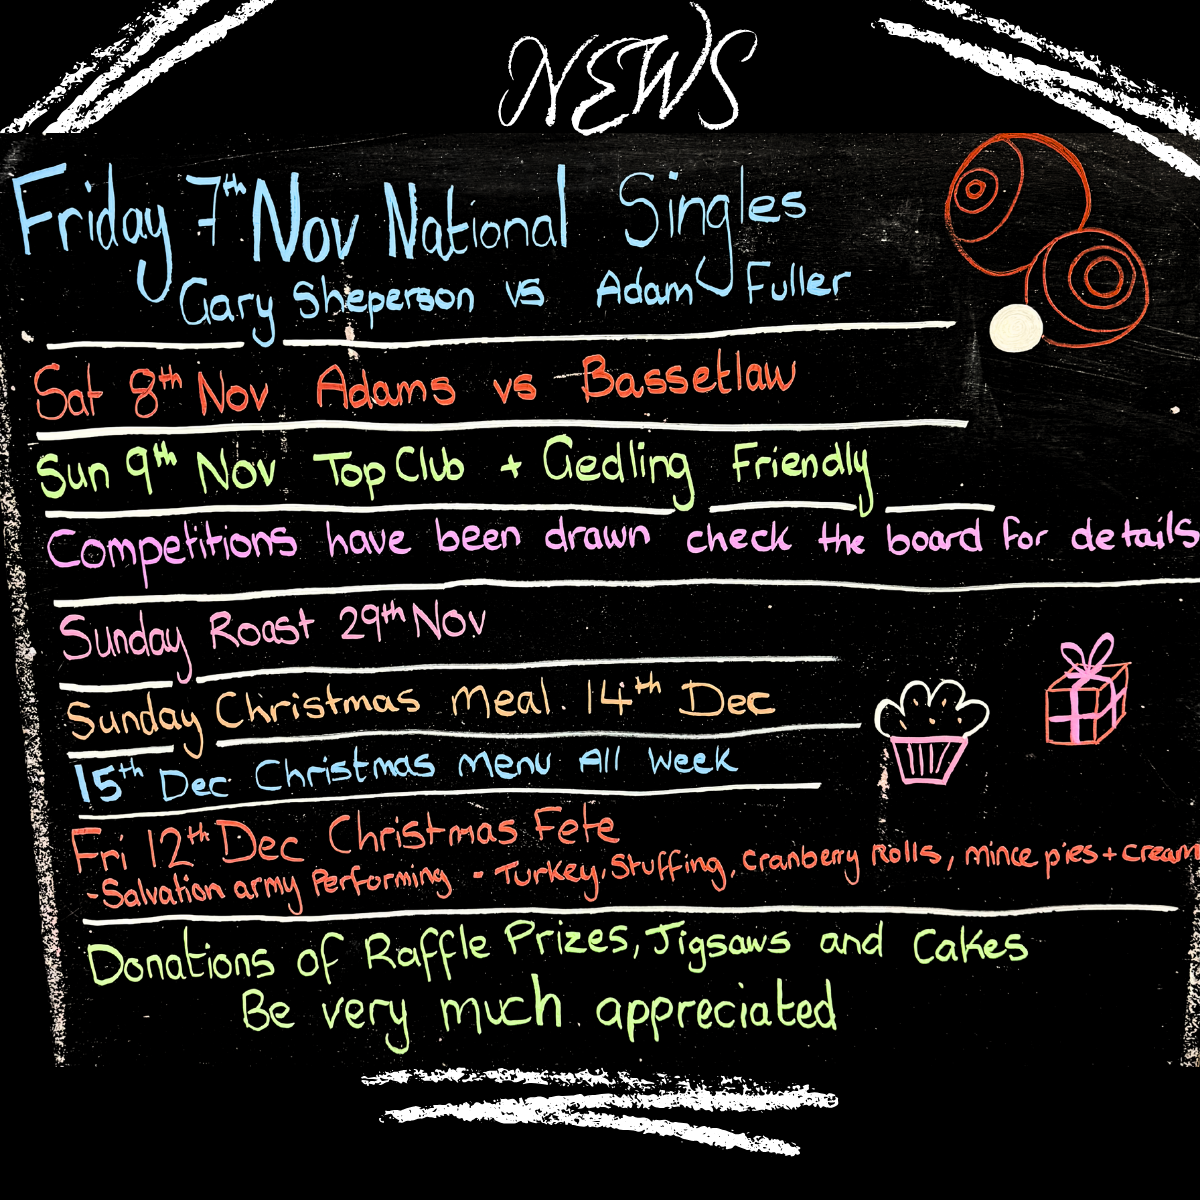 NEWS
Friday 7th Nov National Singles
Gary Sheperson vs Adam Fuller
Sat 8th Nov Adams vs Bassetlaw
Sun 9th Nov Top Club + Gedling Friendly
Competitions have been drawn check the board for details
Sunday Roast 29th Nov
Sunday Christmas Meal. 14th Dec
15th Dec Christmas Menu All Week
Fri 12th Dec Christmas Fete
-Salvation army Performing - Turkey, Stuffing, Cranberry Rolls, mince pies + cream
Donations of Raffle Prizes, Jigsaws and Cakes
Be very much appreciated